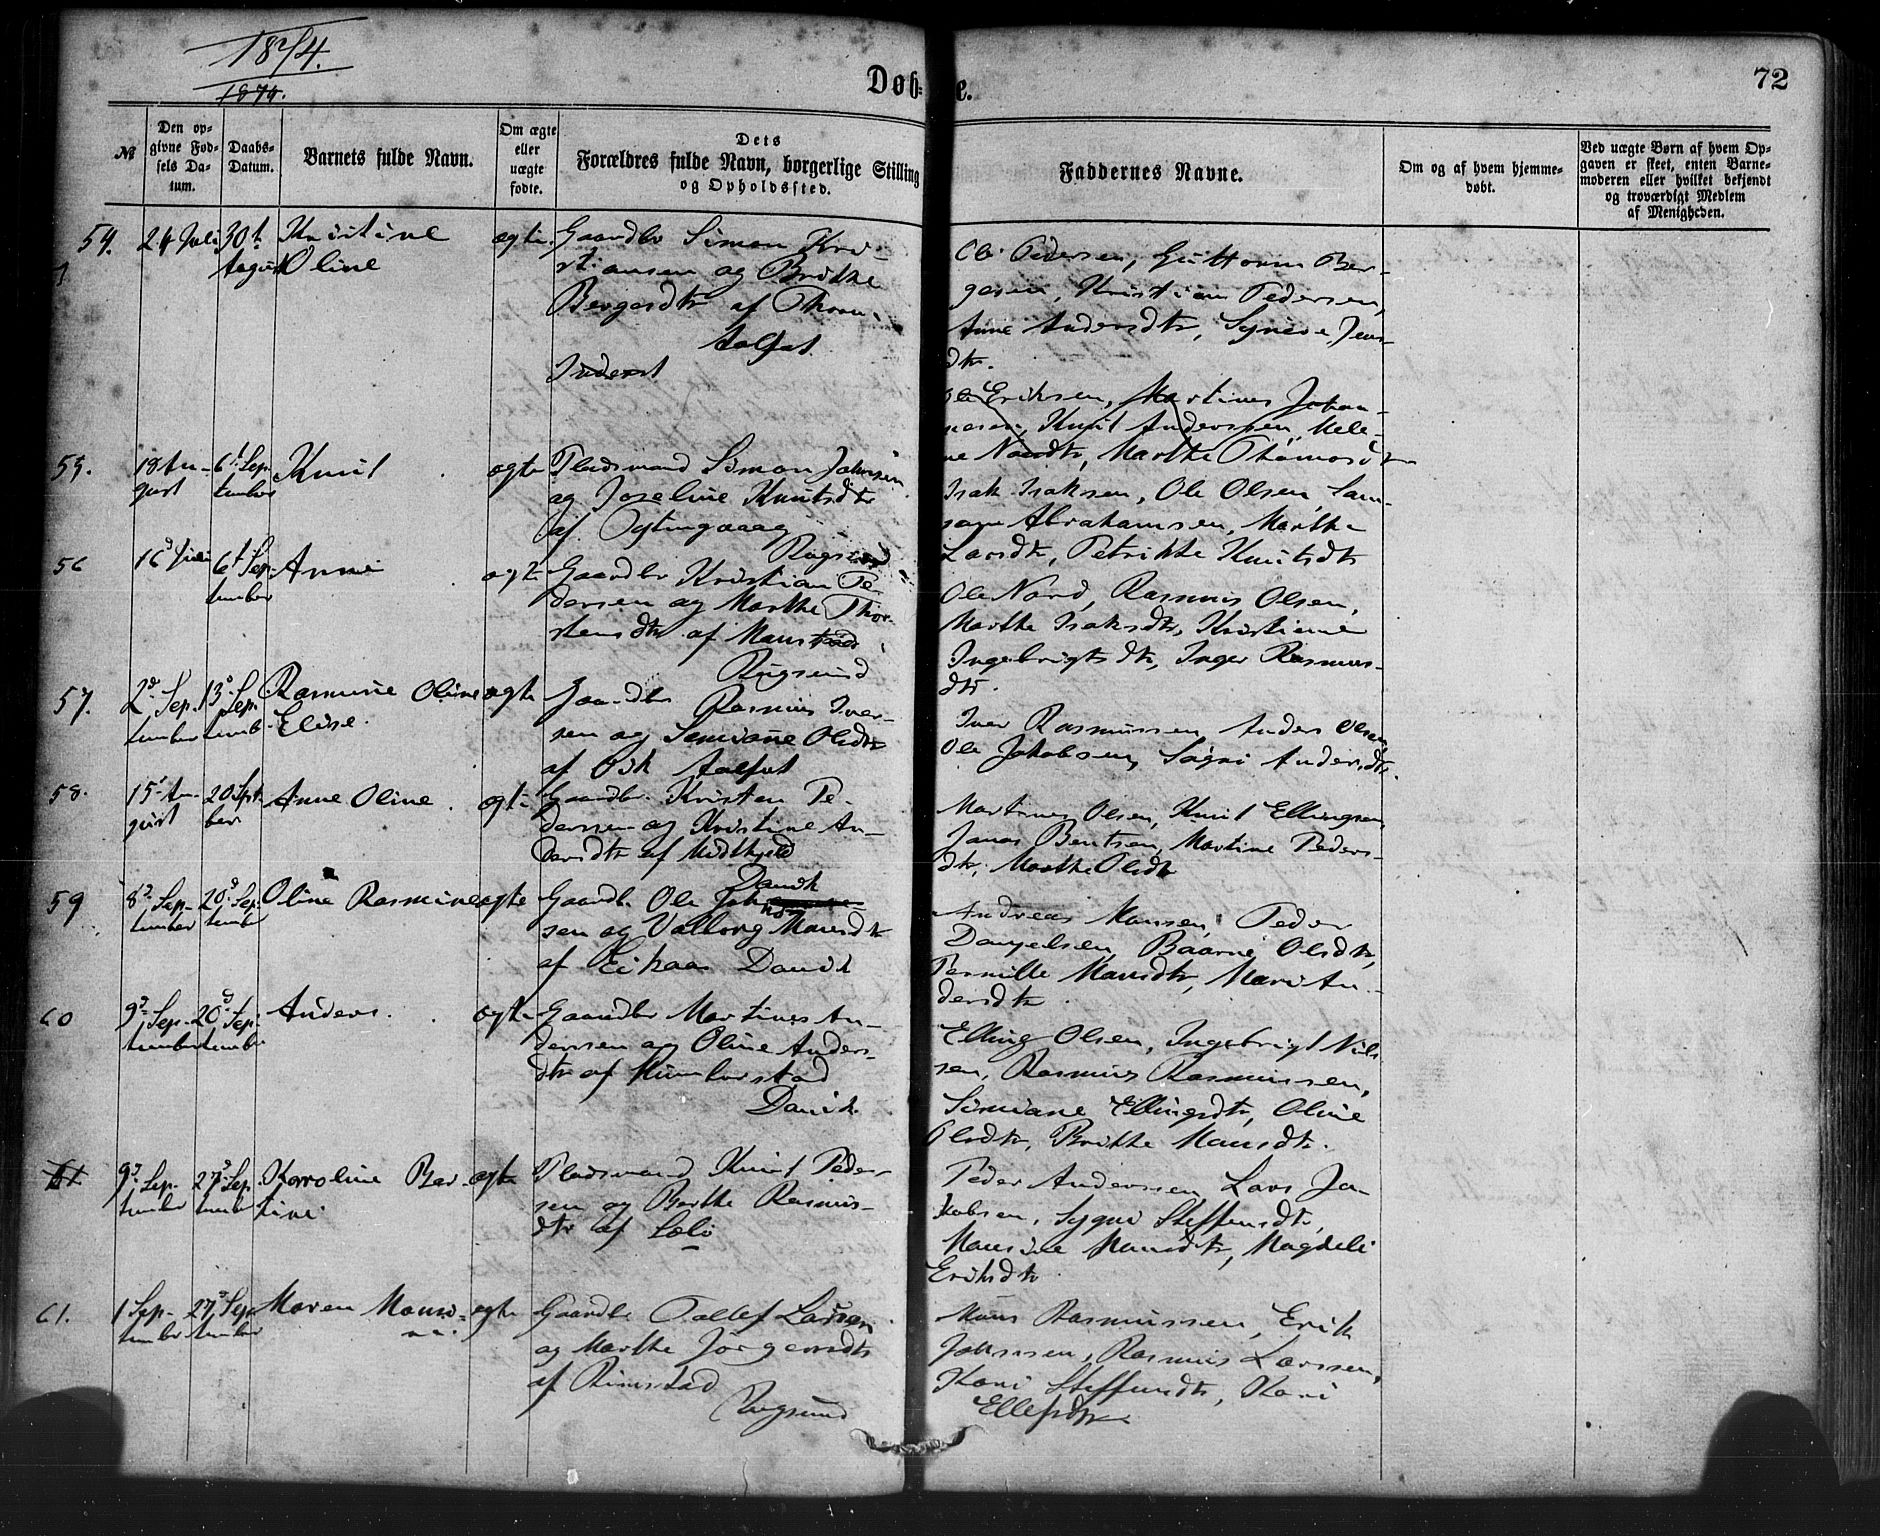 1874.
1874.
Døb-
e.
72
№
Den op-
givne Fød-
sels Da-
tum.
Daabs-
Datum.
Barnets fulde Navn.
Om ægte
eller
uægte
fødte.
Dets
Forældres fulde Navn, borgerlige Stilling
og Opholdssted.
Faddernes Navne.
Om og af hvem hjemme-
døbt.
Ved uægte Børn af hvem Op-
gaven er skeet, enten Barne-
moderen eller hvilket bekjendt
og troværdigt Medlem
af Menigheden.
54. 24 Juli 30t August Kristine
Oline
ægte. Gaardbr Simon Kri-
stiansen og Brithe
Bergesdtr af
Aalfot
Ole Pedersen, Guttorm Ber-
gesen, Kristian Pedersen,
Anne Andersdtr, Synneve Jens-
dtr.
Ole Eriksen, Martinus Johan-
nesen, Knut Anderssen, Mele-
ne Marthe Thomasdtr
55. 18 Au-
gust
6t Sep-
tember
Knut
ægte Pladsmand Simon Johnsen
og Joseline Knutsdtr
af
Rugsund
Isak Isaksen, Ole Olsen, Sam-
son Abrahamsen, Marthe
Larsdtr, Petrikke Knutsdtr
56 16d Juli 6t Sep-
tember
Anne
ægte Gaardbr Kristian Pe-
dersen og Marthe Thor-
stensdtr af Maurstad
Rugsund
Ole Nord, Rasmus Olsen,
Marthe Isaksdtr, Kristiane
Ingebrigtsdtr, Inger Rasmus-
dtr.
57. 2d Sep-
tember
13d Sep-
temb.
Rasmine Oline
Elise.
ægte Gaardbr Rasmus Iver-
sen og Simiane Olsdtr
af Aalfot
Iver Rasmussen, Anders Olsen,
Ole Jakobsen, Sogni Andersdtr.
58. 15 Au-
gust
20 Septem-
ber
Anne Oline.
ægte Gaardbr. Kristen Pe-
dersen og Kristine An-
dersdtr af Midthjeld
Davik
Martinus Olsen, Knut Ellingsen,
Jonas Bentsen, Martine Peders-
dtr, Marthe Olsdtr
59 8d Sep-
tember
20d Sep-
temb
Oline Rasmine
ægte Gaardb. Ole Johan-
sen og Valborg Mausdtr
af Eikaas Davik
Andreas Monsen, Peder
Danyelsen, Baarni Olsdtr,
Pernille Mausdtr, Mari An-
dersdtr
60 9d Sep-
tember
20d Sep-
tember
Anders.
ægte Gaardbr Martinus An-
derssen og Oline Anders-
dtr af Humborstad
Davik.
Elling Olsen, Ingebrigt Niels-
sen, Rasmus Rasmussen,
Simiane Ellingsdtr, Oline
Olsdtr, Brithe Mausdtr.
61. 9d Sep-
tember
27d Sep-
temb
Karoline Ber-
tine
ægte Pladsmand Knut Peder-
sen og Berthe Rasmus-
dtr af
Peder Anderssen, Lars Ja-
kobsen, Sygni Steffensdtr,
Mausdtr, Magdeli
Eriksdtr
61. 1 Sep-
tember
27d Sep-
tember
Maren Mons-
ægte Gaardbr Tollef Larsen
og Marthe Jørgensdtr
af Rimstad
Rugsund
Maus Rasmussen, Erik
Johnsen, Rasmus Larssen,
Kari Steffensdtr, Kari
Ellefsdtr